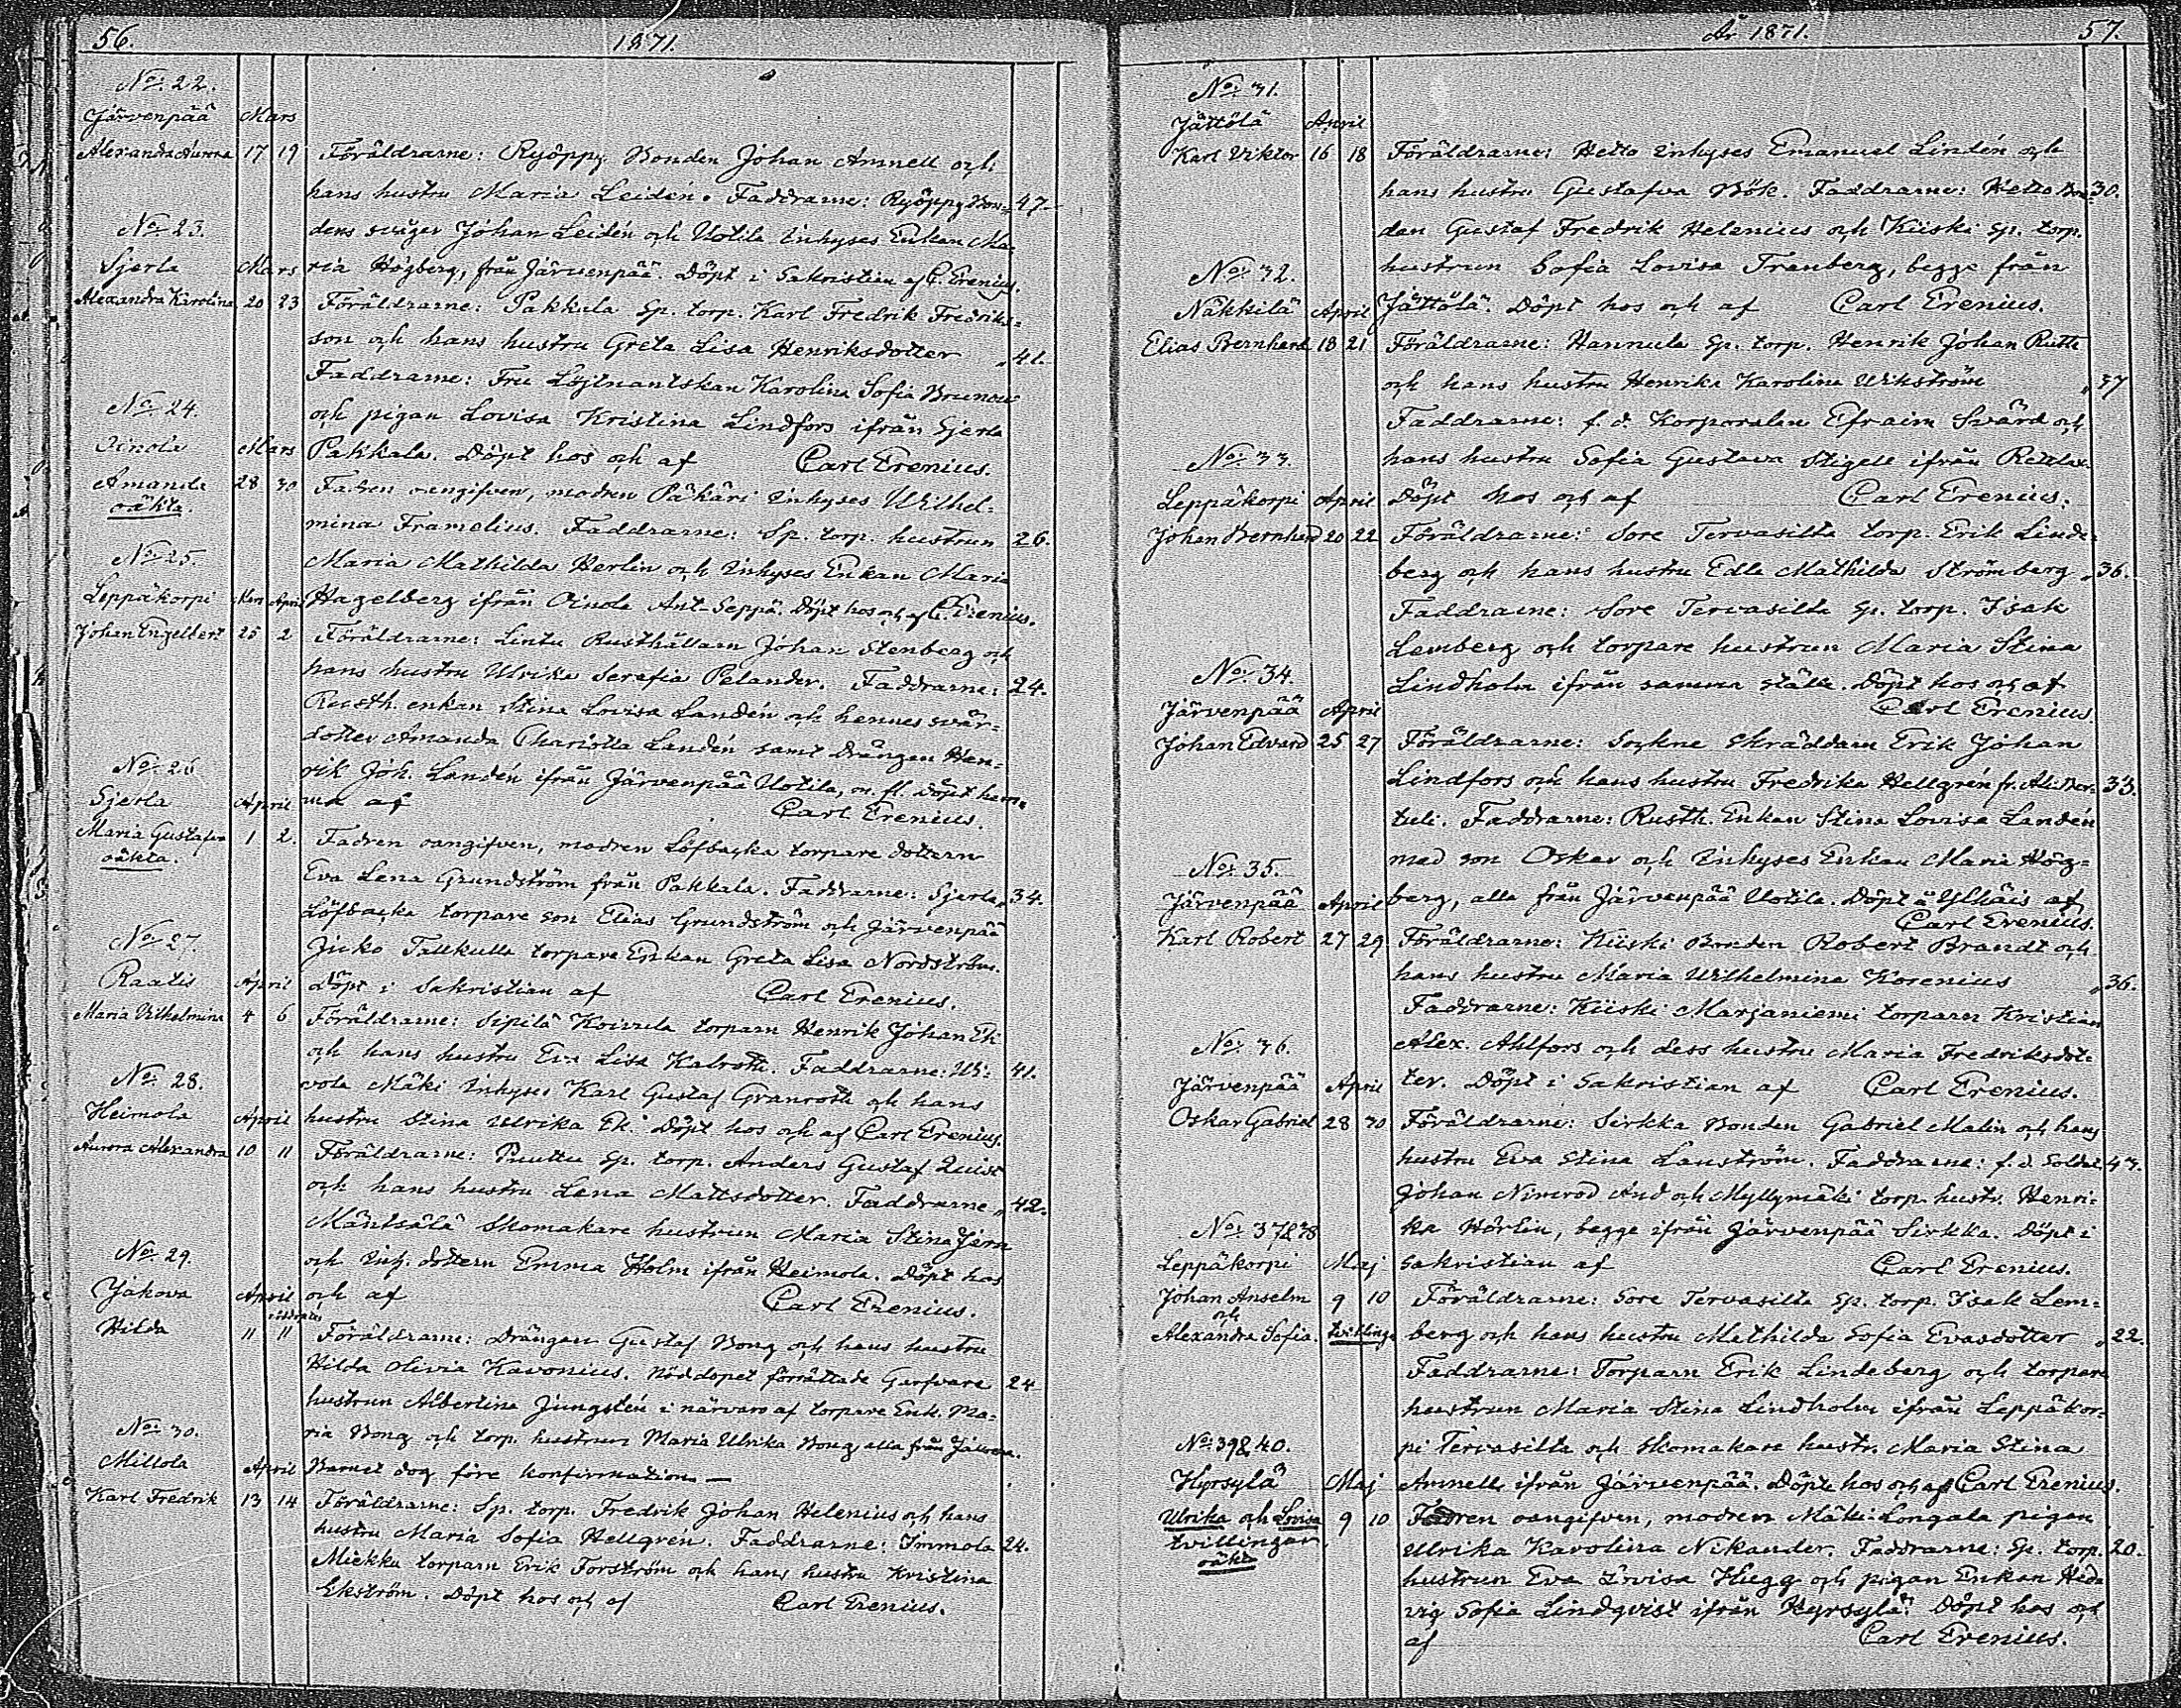 56.
1871.
No: 22.
Järvenpää Mars
Alexandra Aurora 17 19 Föräldrarne: Ryöppy Bonden Johan Amnell och
hans hustru Maria Leidén. Faddrarne: Ryöppy Bon= 47.
dens svåger Johan Leidén och Uotila Inhyses Enkan Ma=
No: 23.
Sjerla Mars ria Högberg, från Järvenpää. Döpt i Sakristian af C. Erenius.
Alexandra Karolina 20 23 Föräldrarne: Pakkala Sp. torp. Karl Fredrik Fredriks=
son och hans hustru Greta Lisa Henriksdotter „41.
Faddrarne: Fru Löjtnantskan Karolina Sofia Brunow
No: 24.
och pigan Lovisa Kristina Lindfors ifrån Sjerla
Oinola Mars Pakkala. Döpt hos och af Carl Erenius.
Amanda 28 30 Fadren oangifven, modren Päkäri Inhyses Wilhel=
oäkta.
mina Framolius. Faddrarne: Sp. torp. hustrun 26.
No: 25.
Maria Mathilda Herlin och Inhyses Enkan Maria
Leppäkorpi Mars April Hagelberg ifrån Oinola Ant-Seppä. Döpt hos och af C. Erenius.
Johan Engelbert 25 2 Föräldrarne: Lintu Rusthållarn Johan Stenberg och
hans hustru Ulrika Serafia Pelander. Faddrarne: 24.
Rusth. enkan Stina Lovisa Landén och hennes svär=
dotter Amanda Charlotta Landén samt Drängen Hen=
No: 26
rik Joh. Landén ifrån Järvenpää Uotila, m. fl. döpt hem=
Sjerla April ma af Carl Erenius.
Maria Gustafva 1 2. Fadren oangifven, modren Löfbacka torpare dottern
oäkta.
Eva Lena Grundström från Pakkala. Faddrarne: Sjerla „34.
Löfbacka torpare son Elias Grundström och Järvenpää
No: 27.
Juko Taukulla torpare Enkan Greta Lisa Nordström.
Raatis April Döpt i Sakristian af Carl Erenius.
Maria Vilhelmina 4 6 Föräldrarne: Sipilä Koivula torparn Henrik Johan Ek
och hans hustru Eva Lisa Kalroth. Faddrarne: 41.
No: 28.
Mäki Inhyses Karl Gustaf Granroth och hans
Heimola April hustru Stina Ulrika Ek. Döpt hos och af Carl Erenius.
Aurora Alexandra 10 11 Föräldrarne: Puuttu Sp. torp. Anders Gustaf Quist
och hans hustru Lena Mattsdotter. Faddrarne „42.
Mäntsälä Skomakare hustrun Maria Stina Jern
No: 29.
och Inh. dottern Emma Holm ifrån Heimola. Döpt hos
Jakova April och af Carl Erenius.
Hilda 11 11 Föräldrarne: Drängen Gustaf Bong och hans hustru
Hilda Olivia Kavonius. Nöddopet förrättade Garfvare 24
hustrun Albertina Jungstén i närvaro af torpare Enk. Ma=
No: 30.
ria Bong och torp. hustrun Maria Ulrika Bong alla från Jakova.
Millola April Barnet dog före konfirmation.—
Karl Fredrik 13 14 Föräldrarne: Sp. torp. Fredrik Johan Helenius och hans
hustru Maria Sofia Hellgrén. Faddrarne: Immola 24.
Miekku torparn Erik Forström och hans hustru Kristina
Ekström. Döpt hos och af Carl Erenius.
År 1871. 57.
No: 31.
Jättölä April
Karl Viktor 16 18 Föräldrarne: Hetto Inhyses Emanuel Lindén och
hans hustru Gustafva Böök. Faddrarne: Hetto Bon= 30.
den Gustaf Fredrik Helenius och Kiiski Sp. torp.
No: 32.
hustrun Sofia Lovisa Tranberg, begge från
Näkkilä April Jättölä. Döpt hos och af Carl Erenius.
Elias Bernhard 18 21 Föräldrarne: Hannula Sp. torp. Henrik Johan Ruth
och hans hustru Henrika Karolina Wikström „37
Faddrarne: f. d. Korporalen Efraim Svärd och
No: 33.
hans hustru Sofia Gustava Stigell ifrån
Leppäkorpi April Döpt hos och af Carl Erenius.
Johan Bernhard 20 22 Föräldrarne: Sore Tervasilta torp. Erik Linde=
berg och hans hustru Edla Mathilda Strömberg „36.
Faddrarne: Sore Tervasilta Sp. torp. Isak
Lemberg och torpare hustrun Maria Stina
No: 34.
Lindholm ifrån samma ställe. Döpt hos och af
Järvenpää April Carl Erenius.
Johan Edvard 25 27 Föräldrarne: Sockne Skräddarn Erik Johan
Lindfors och hans hustru Fredrika Hellgrén fr. 33.
tuli. Faddrarne: Rusth. Enkan Stina Lovisa Landén
No: 35.
med son Oskar och Inhyses Enkan Maria Hög=
Järvenpää April berg, alla från Järvenpää Uotila. Döpt å Ylhäis af
Carl Erenius.
Karl Robert 27 29 Föräldrarne: Kiiski Bonden Robert Brandt och
hans hustru Maria Wilhelmina Korenius „36.
Faddrarne: Kiiski Marjaniemi torparen Kristian
No: 36.
Alex. Ahlfors och dess hustru Maria Fredriksdot=
Järvenpää April ter. Döpt i Sakristian af Carl Erenius.
Oskar Gabriel 28 30 Föräldrarne: Sirkka Bonden Gabriel Malin och hans
hustru Eva Stina Lanström. Faddrarne: f. d. Soldat 43.
Johan Nimrod And och Myllymäki torp. hustr. Henri=
No: 37&38
ka Hörlin, begge ifrån Järvenpää Sirkka. Döpt i
Leppäkorpi Maj Sakristian af Carl Erenius.
Johan Anselm 9 10 Föräldrarne: Sore Tervasilta Sp. torp. Isak Lem=
och
Alexandra Sofia. tvillingar berg och hans hustru Mathilda Sofia Evasdotter „22.
Faddrarne: Torparn Erik Lindeberg och torpare
hustrun Maria Stina Lindholm ifrån Leppäkor=
No: 39&40.
pi Tervasilta och Skomakare hustr. Maria Stina
Hyrsylä Maj Amnell ifrån Järvenpää. Döpte hos och af Carl Erenius.
Ulrika och Lovisa 9 10 Fadren oangifven, modren Mäki-Longala pigan
tvillingar
Ulrika Karolina Nikander. Faddrarne: Sp. torp. 20.
oäkta
hustrun Eva Lovisa Hugg och pigan Enkan Hed=
vig Sofia Lindqvist ifrån Hyrsylä. Döpt hos och
af Carl Erenius.